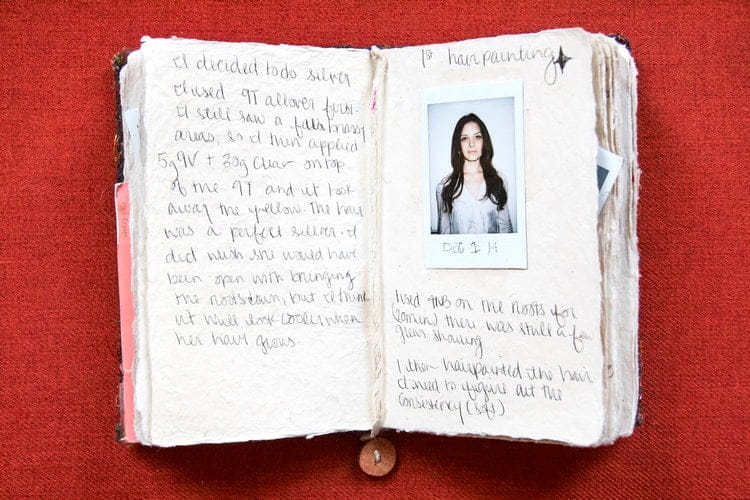 I decided to do silver
I used 9T allover first.
I still saw a few brassy
areas, so I then applied
5g9V + 30g clear on top
of the 9T and it took
away the yellow. The hair
was a perfect silver. I
did wish she would have
been open with bringing
the roots down, but I think
it will look cooler when
her hair grows.
1st hairpainting
DEC 1 14
I used 4NB on the roots for
(20min) there was still a few
greys showing
I then hairpainted the hair
I need to figure out the
consistency (soft)